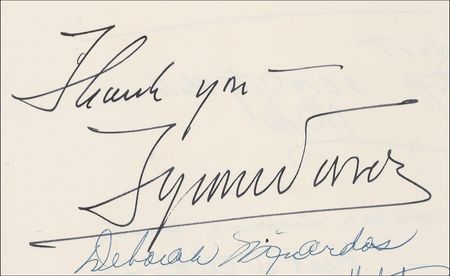 Thank you —
Tyrone Power
Deborah Minardos